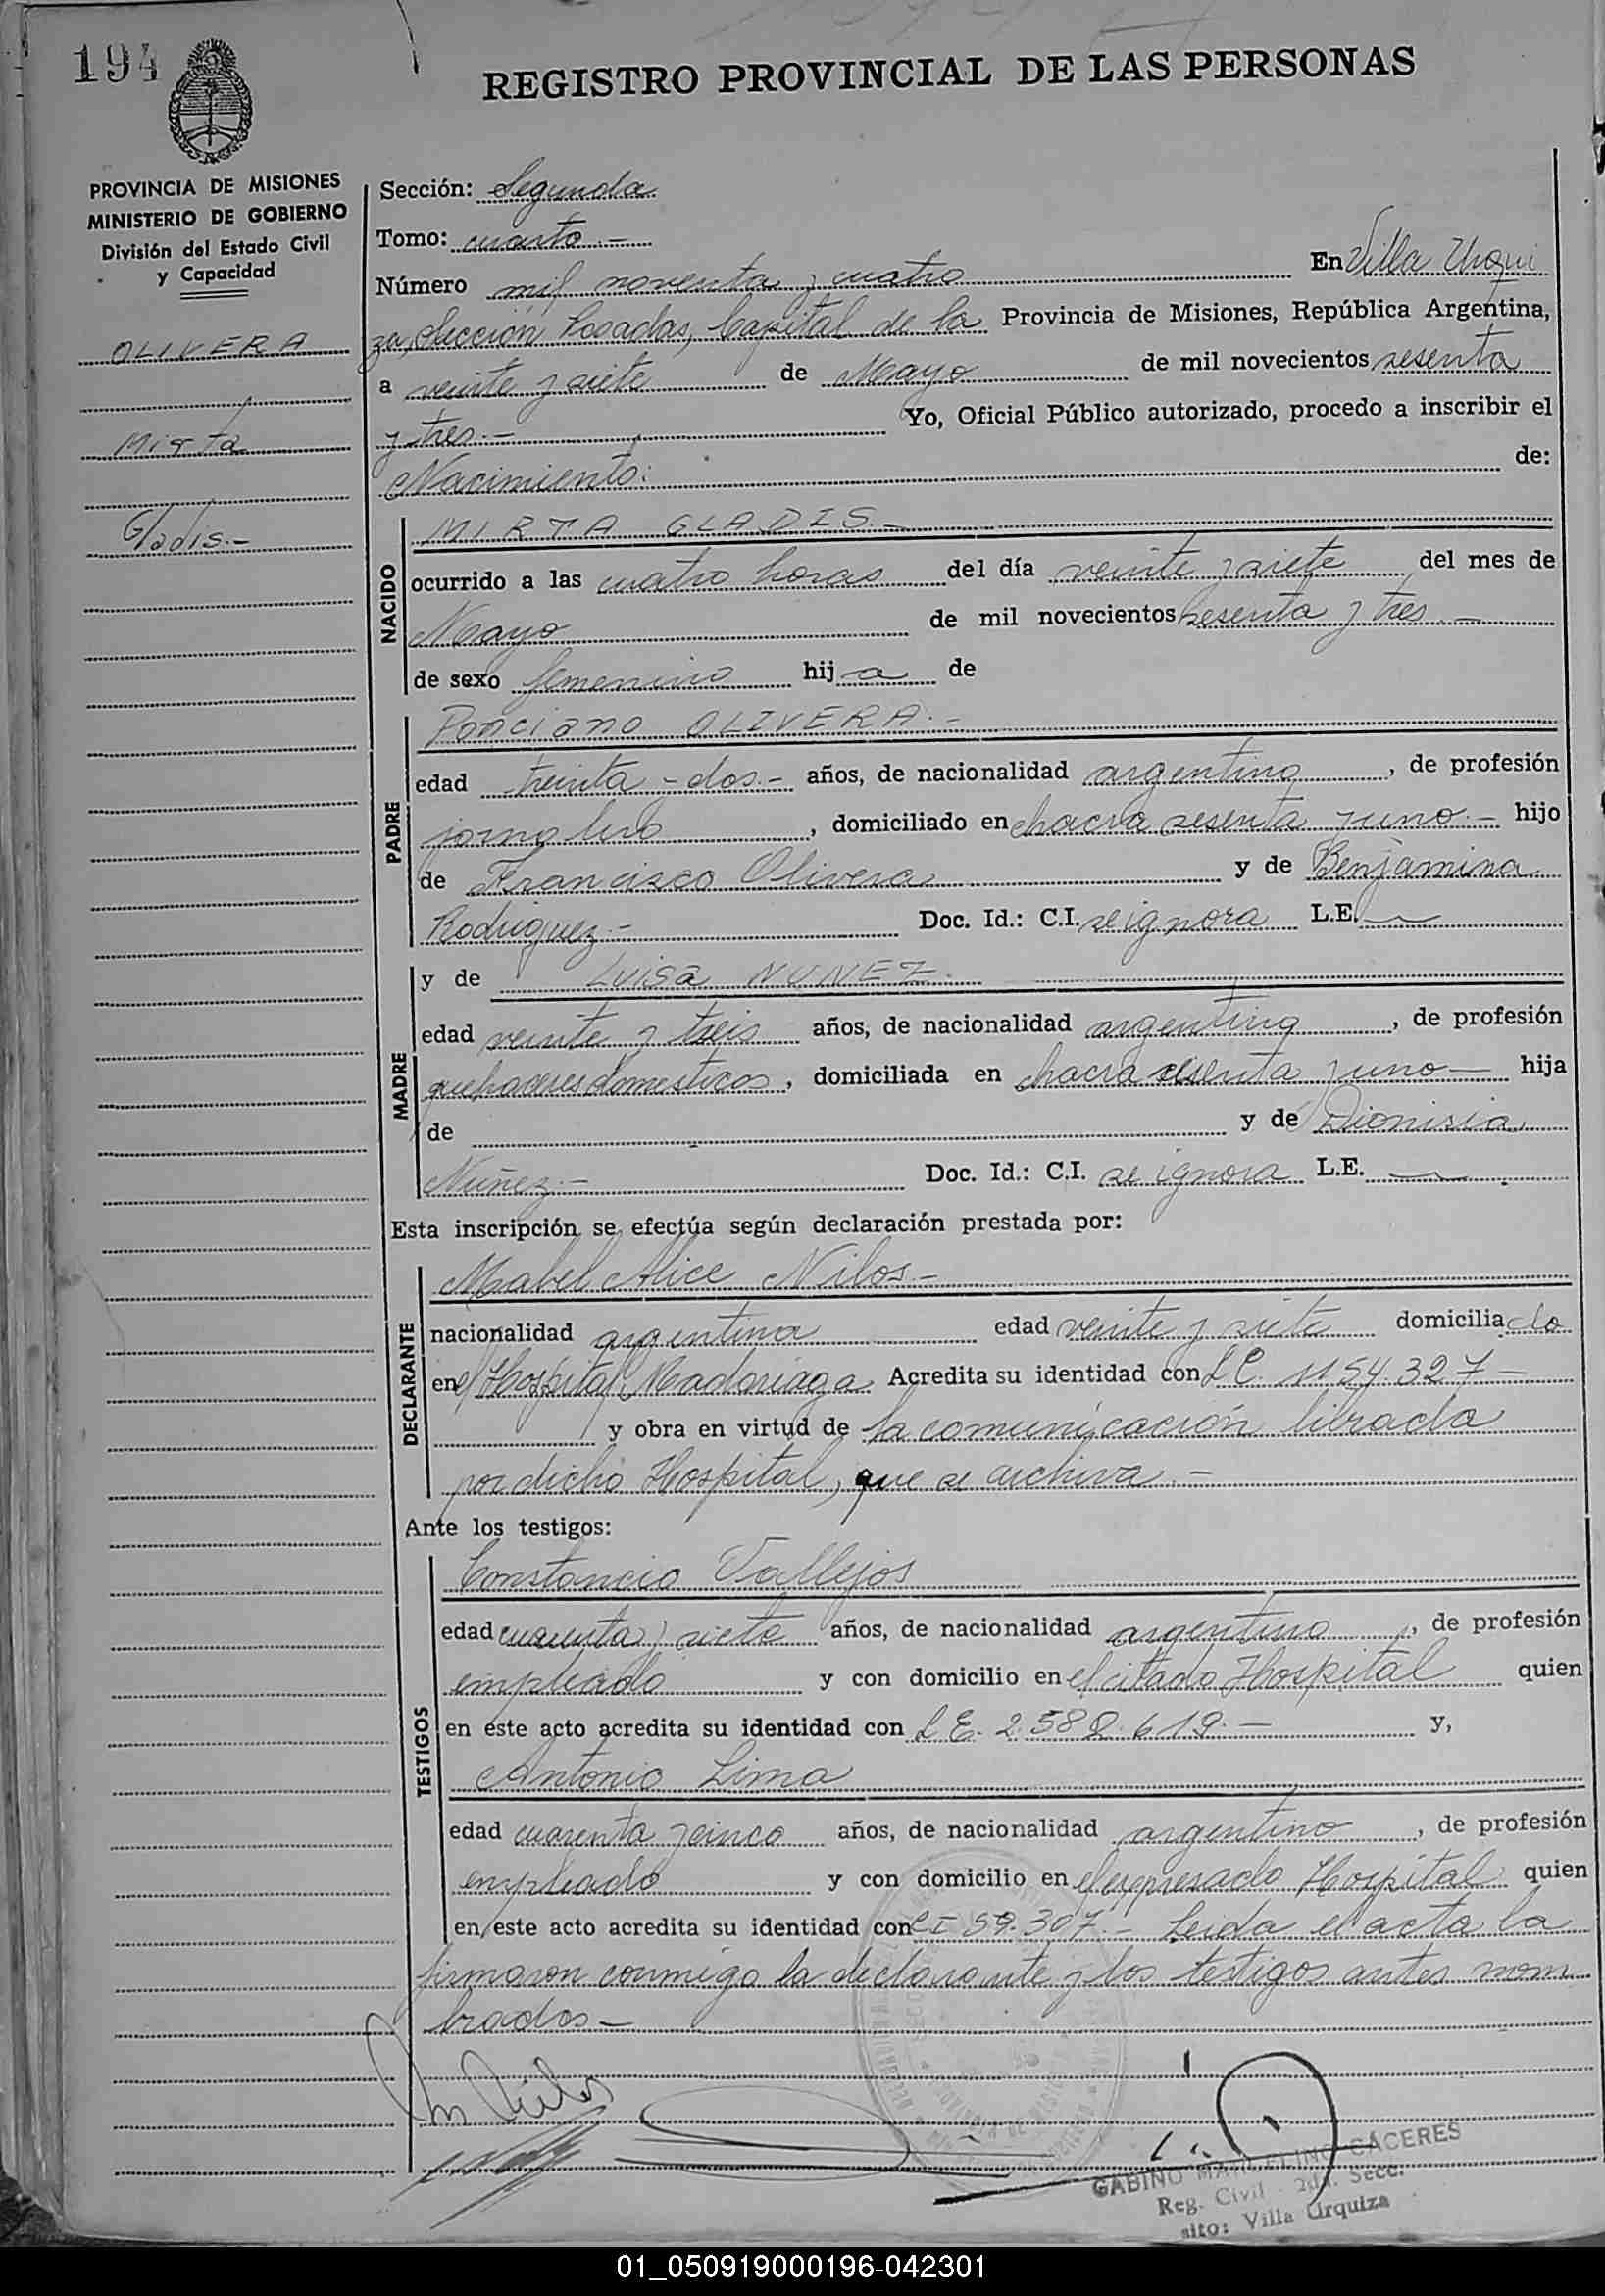 194
REGISTRO PROVINCIAL DE LAS PERSONAS
PROVINCIA DE MISIONES
MINISTERIO DE GOBIERNO
División del Estado Civil
y Capacidad
OLIVERA
Mirta
Gladis.-
Sección: Segunda
Tomo: cuarto.-
Número mil noventa y cuatro En Villa Urqui
za, Sección Posadas, Capital de la Provincia de Misiones, República Argentina,
a veinte y siete de Mayo de mil novecientos sesenta
y tres.- Yo, Oficial Público autorizado, procedo a inscribir el
Nacimiento: de:
NACIDO
MIRTA GLADIS.-
ocurrido a las cuatro horas del día veinte y siete del mes de
Mayo de mil novecientos sesenta y tres.-
de sexo femenino hija de
PADRE
Ponciano OLIVERA.-
edad treinta - dos.- años, de nacionalidad argentina, de profesión
jornalero, domiciliado en chacra sesenta y uno.- hijo
de Francisco Olivera y de Benjamina
Rodriguez.- Doc. Id.: C.I. se ignora L.E. —
MADRE
y de Luisa NUNEZ.
edad veinte y treis años, de nacionalidad argentina, de profesión
quehaceres domesticos, domiciliada en chacra sesenta y uno— hija
de y de Dionisia
Nuñez.- Doc. Id.: C.I. se ignora L.E. —
Esta inscripción se efectúa según declaración prestada por:
DECLARANTE
Mabel Alice Nilos.-
nacionalidad argentina edad veinte y siete domiciliado
en el Hospital Madariaga. Acredita su identidad con L C. 1154.327—
y obra en virtud de la comunicación librada
por dicho Hospital, que se archiva.-
Ante los testigos:
TESTIGOS
Constancio Vallejos
edad cuarenta y siete años, de nacionalidad argentino, de profesión
empleado y con domicilio en el citado Hospital quien
en este acto acredita su identidad con L E. 2.582.619.— y,
Antonio Lima
edad cuarenta y cinco años, de nacionalidad argentino, de profesión
empleado y con domicilio en el expresado Hospital quien
en este acto acredita su identidad con C I 59.307.- Leida el acta la
firmaron conmigo la declarante y los testigos antes nom
brados-
GABINO MARCELINO CACERES
Reg. Civil - 2da. Secc.
sito: Villa Urquiza
01_050919000196-042301